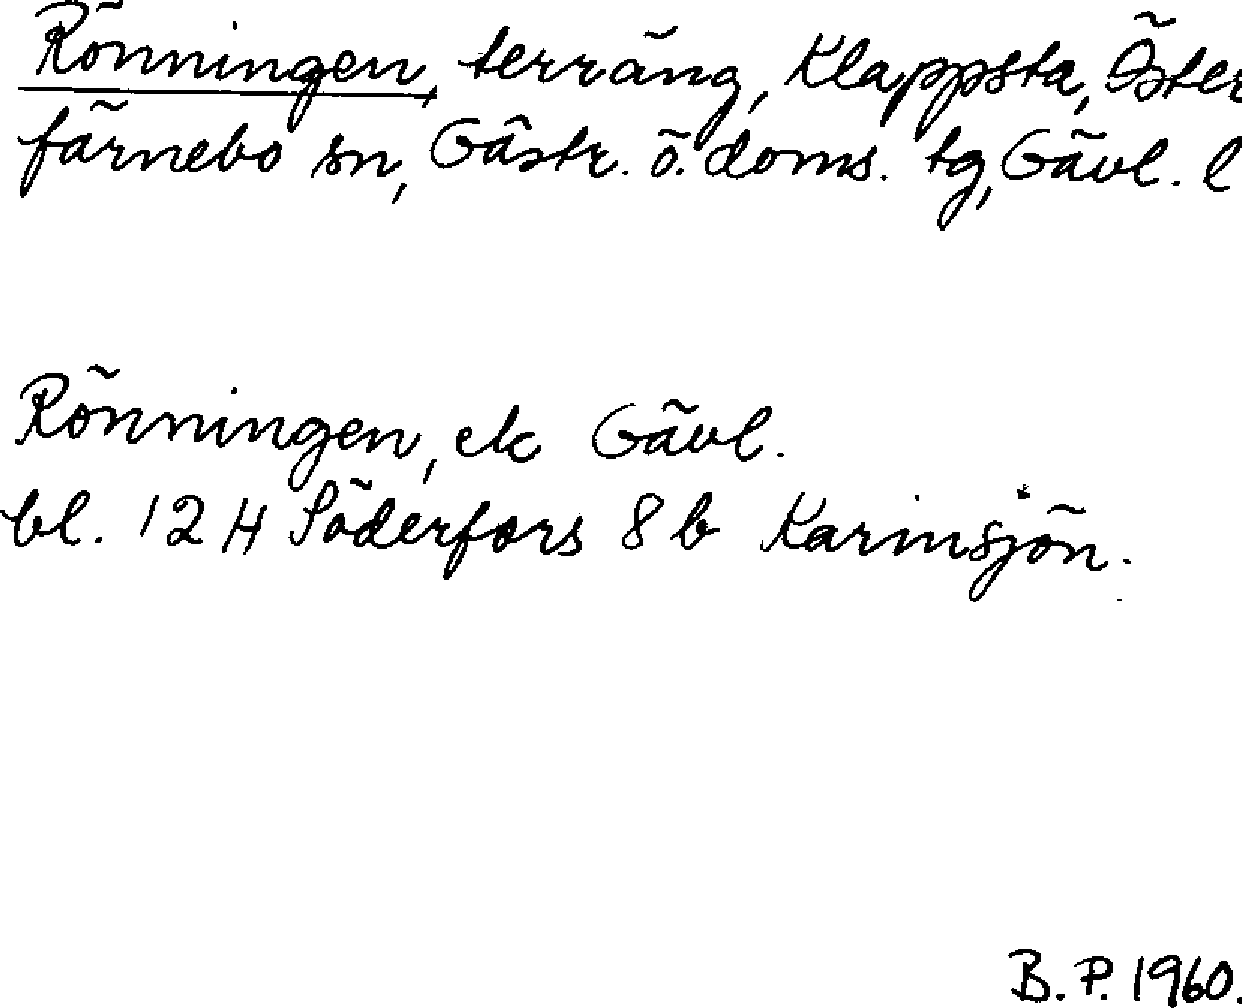 Rönningen, terräng, Klappsta, Öster
färnebo sn, Gästr. ö. doms. tg, Gävl. l
Rönningen, ek Gävl.
bl. 12 H Söderfors 8 b Karinsjön.
B. P. 1960.